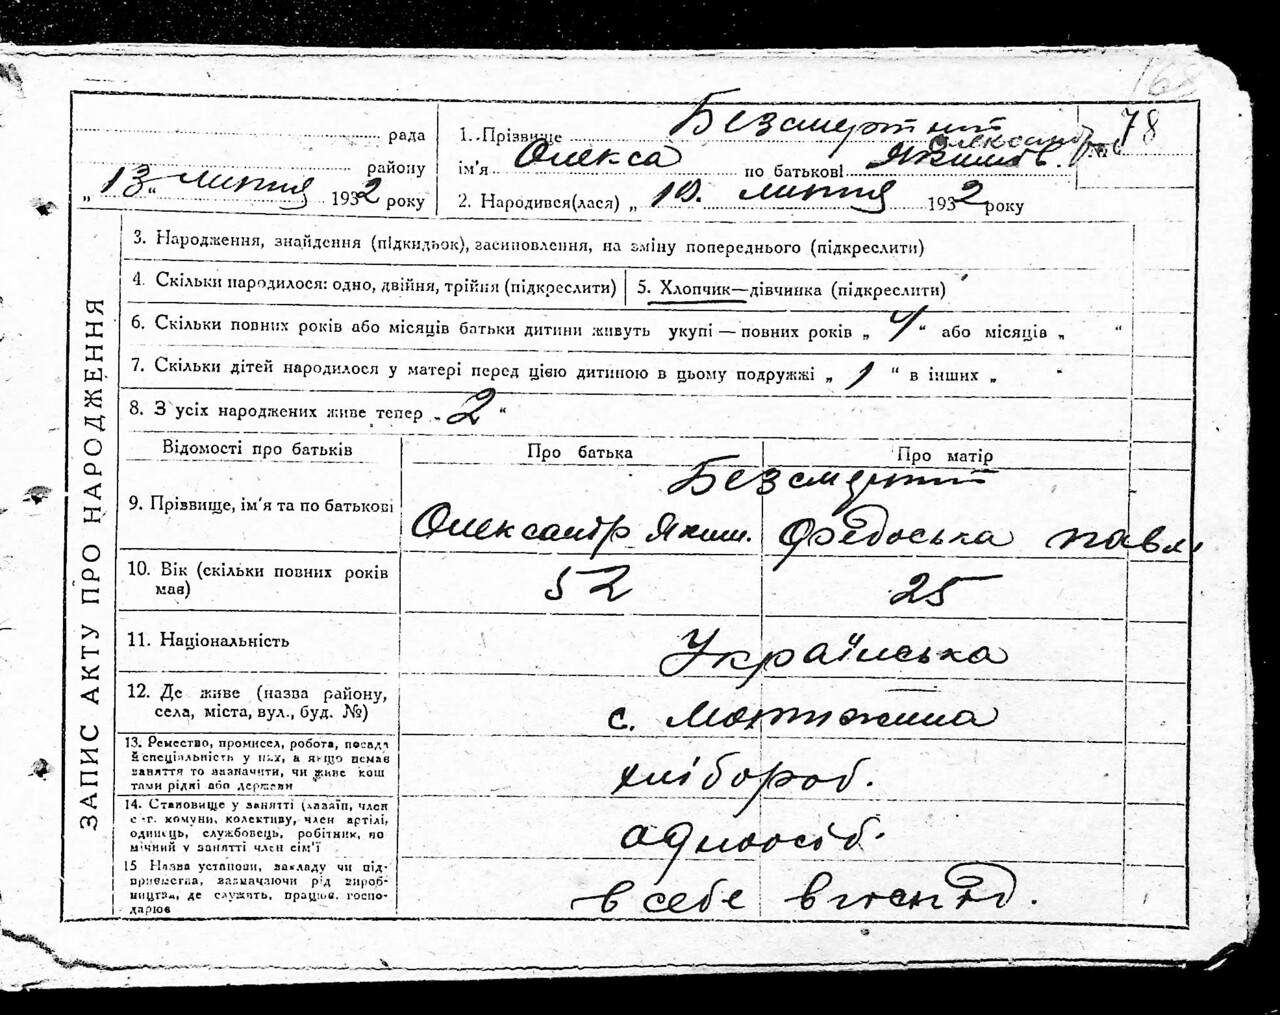 168
рада
району
„ 13 „ липня 1932 року
1. Прізвище Безсмертний
Олександров
№ 78
ім'я Олекса по батькові Якимов.
2. Народився(лася) „ 10. липня 1932 року
ЗАПИС АКТУ ПРО НАРОДЖЕННЯ
3. Народження, знайдення (підкидьок), засиновлення, на зміну попереднього (підкреслити)
4. Скільки народилося: одно, двійня, трійня (підкреслити)
5. Хлопчик—дівчинка (підкреслити)
6. Скільки повних років або місяців батьки дитини живуть укупі — повних років „ 4 “ або місяців „ “
7. Скільки дітей народилося у матері перед цією дитиною в цьому подружжі „ 1 “ в інших „ “
8. З усіх народжених живе тепер „ 2 “
Відомості про батьків
Про батька
Про матір
9. Прізвище, ім'я та по батькові
Безсмертні
Олександр Яким.
Федоська Павл.
10. Вік (скільки повних років
має)
52
25
11. Національність
Українська
12. Де живе (назва району,
села, міста, вул., буд. №)
с. Мотижина
13. Ремество, промисел, робота, посада
й спеціяльність у них, а якщо немає
заняття то зазначити, чи живе кош
тами рідні або держави
хлібороб.
14. Становище у занятті (хазяїн, член
с.-г. комуни, колективу, член артілі,
одинець, службовець, робітник, по
мічний у занятті член сім'ї
одноосіб.
15 Назва установи, закладу чи під-
приємства, зазначаючи рід вироб-
ництва, де служить, працює, госпо-
дарює
в себе в господ.